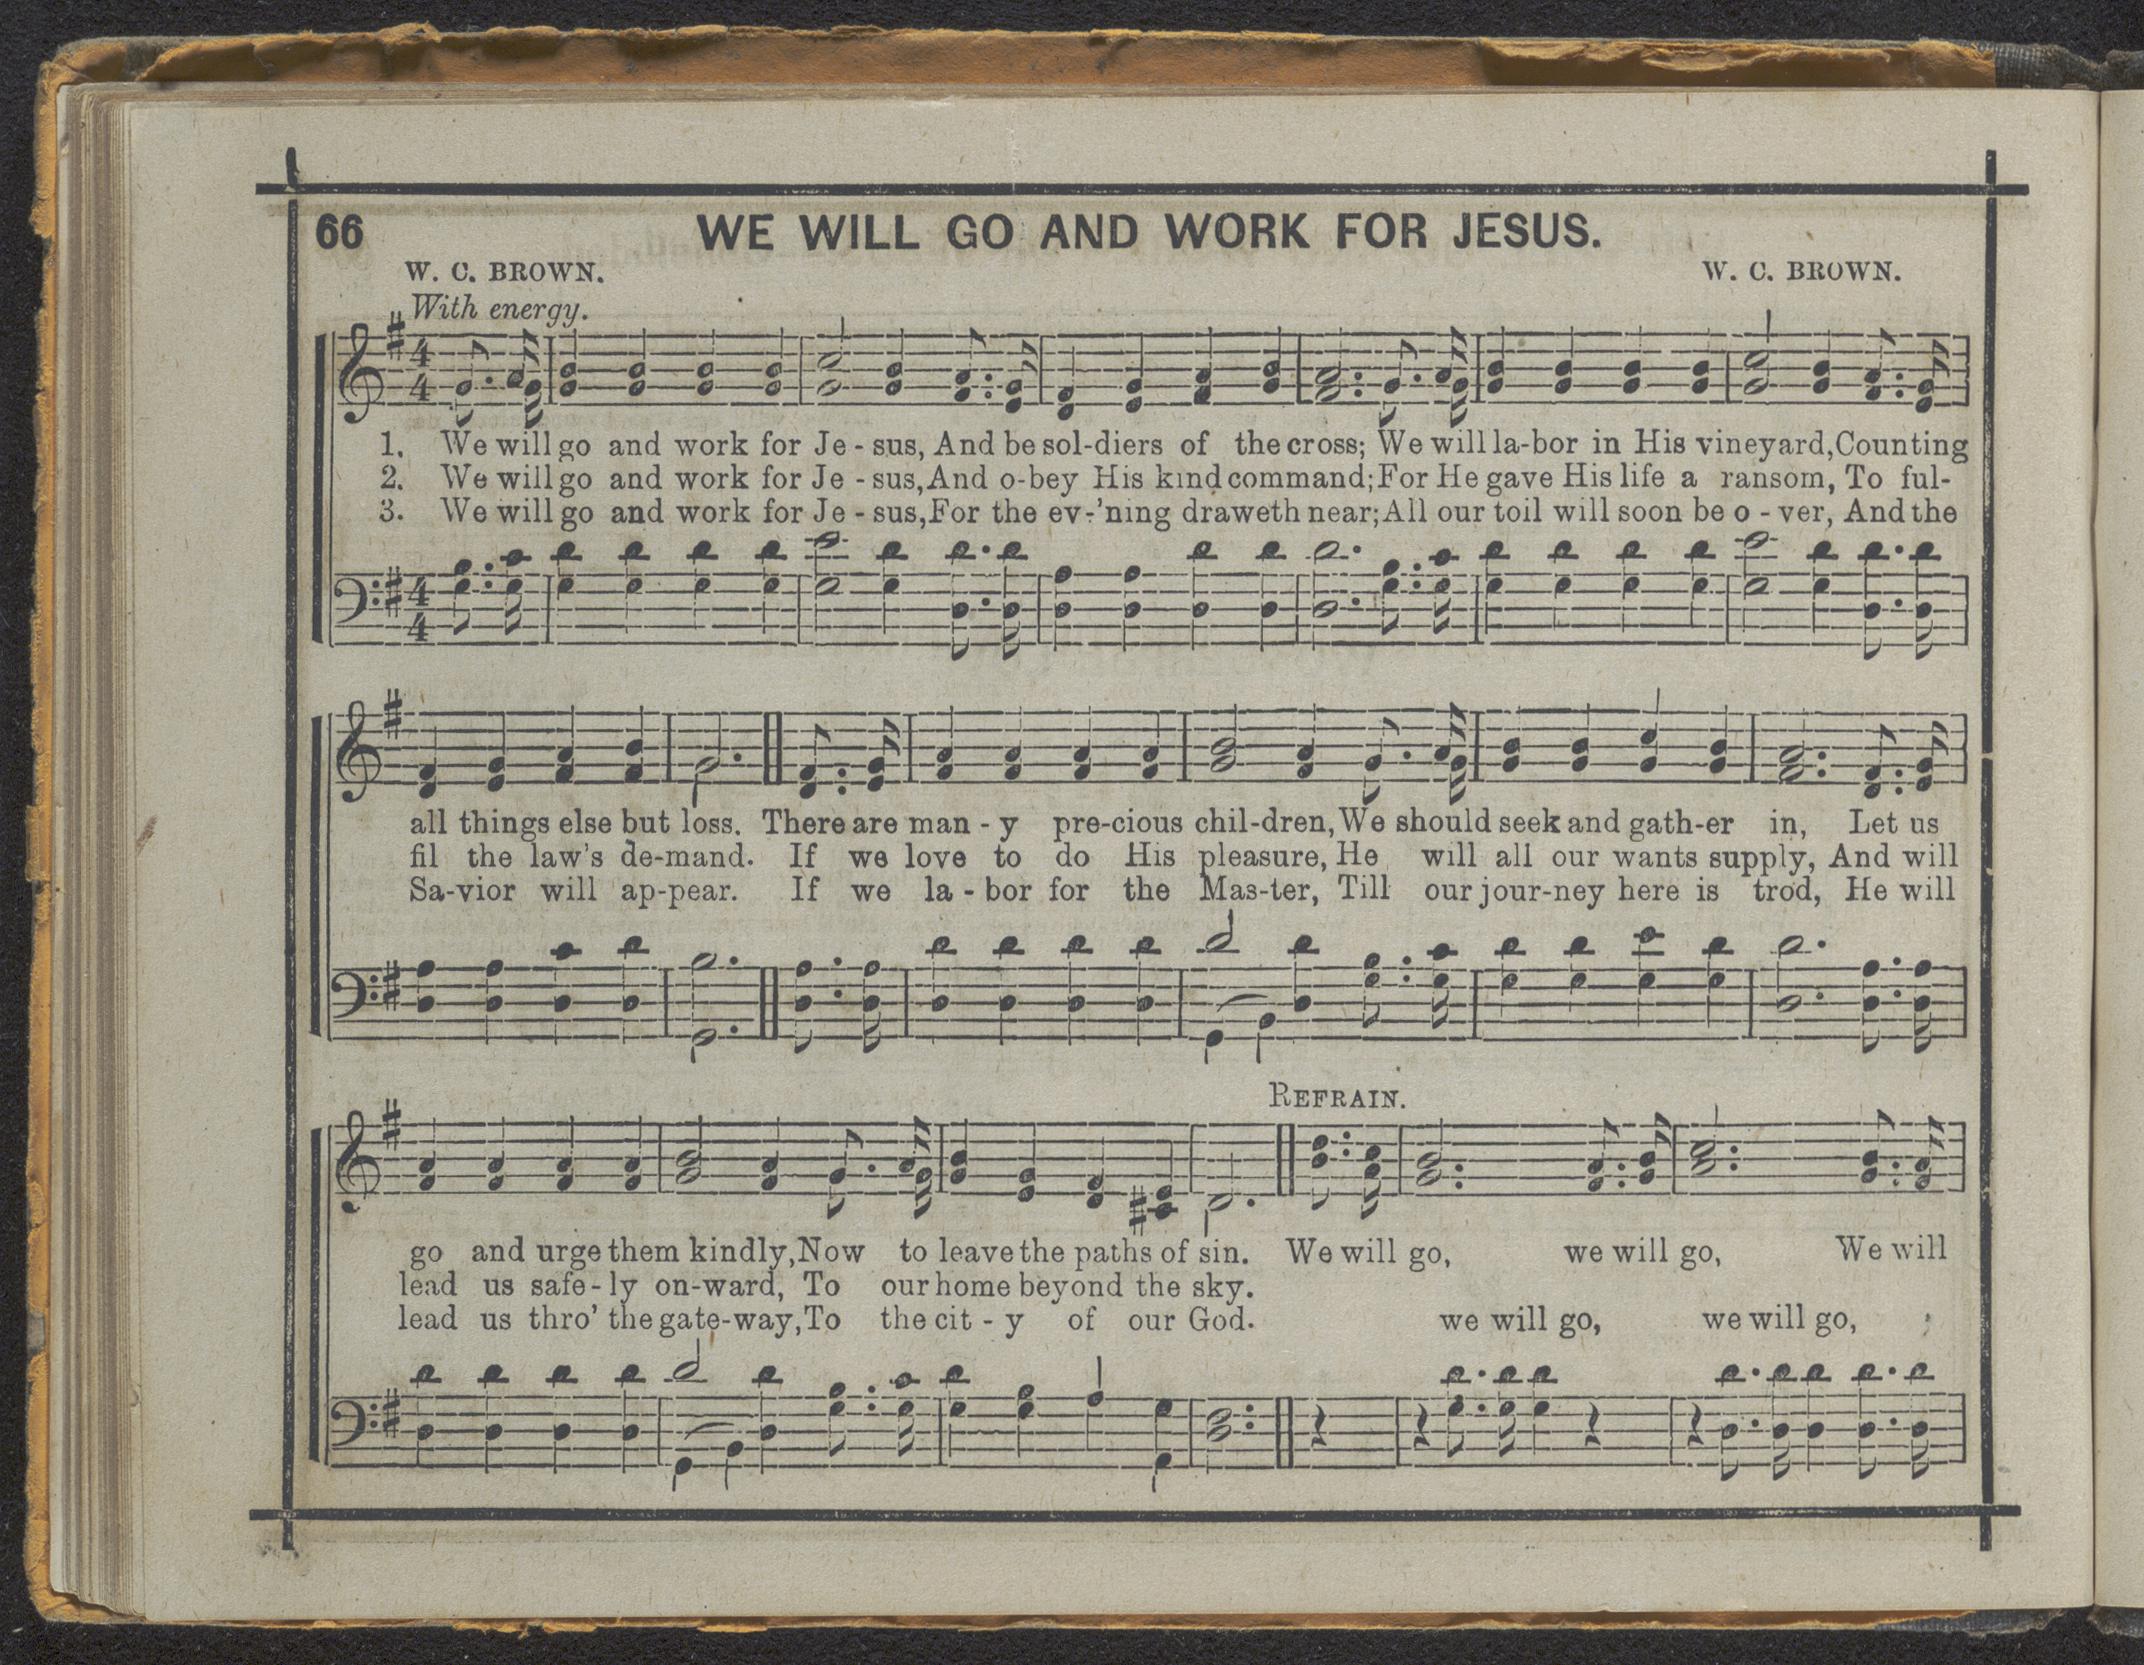 66 WE WILL GO AND WORK FOR JESUS.
W. C. BROWN. W. C. BROWN.
With energy.
1. We will go and work for Je - sus, And be sol-diers of the cross; We will la-bor in His vineyard, Counting
2. We will go and work for Je - sus, And o-bey His kind command; For He gave His life a ransom, To ful-
3. We will go and work for Je - sus, For the ev-'ning draweth near; All our toil will soon be o - ver, And the
all things else but loss. There are man - y pre-cious chil-dren, We should seek and gath-er in, Let us
fil the law's de-mand. If we love to do His pleasure, He will all our wants supply, And will
Sa-vior will ap-pear. If we la - bor for the Mas-ter, Till our jour-ney here is trod, He will
REFRAIN.
go and urge them kindly, Now to leave the paths of sin. We will go, we will go, We will
lead us safe - ly on-ward, To our home beyond the sky.
lead us thro' the gate-way, To the cit - y of our God. we will go, we will go,